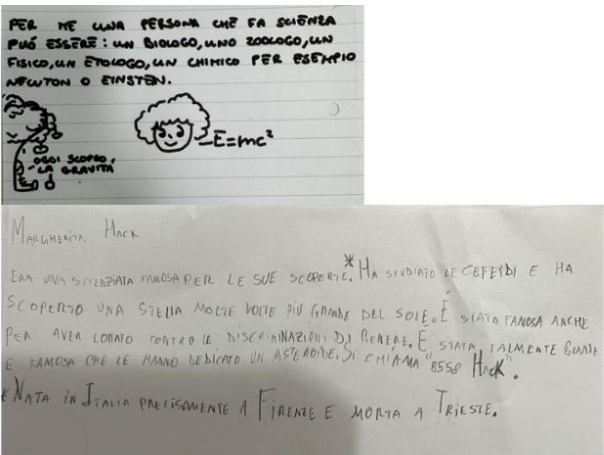 PER ME UNA PERSONA CHE FA SCIENZA
PUÓ ESSERE: UN BIOLOGO, UNO ZOOLOGO, UN
FISICO, UN ETOLOGO, UN CHIMICO PER ESEMPIO
NEWTON O EINSTEN.
E=mc²
OGGI SCOPRO
LA GRAVITA
MARGHERITA HACK
ERA UNA SCIENZIATA FAMOSA PER LE SUE SCOPERTE.* HA STUDIATO LE CEFEIDI E HA
SCOPERTO UNA STELLA MOLTE VOLTE PIÙ GRANDE DEL SOLE. È STATA FAMOSA ANCHE
PER AVER LOTTATO CONTRO LE DISCRIMINAZIONI DI GENERE. È STATA TALMENTE GRANDE
E FAMOSA CHE LE HANNO DEDICATO UN ASTEROIDE. SI CHIAMA "8558 HACK".
* NATA IN ITALIA PRECISAMENTE A FIRENZE E MORTA A TRIESTE.